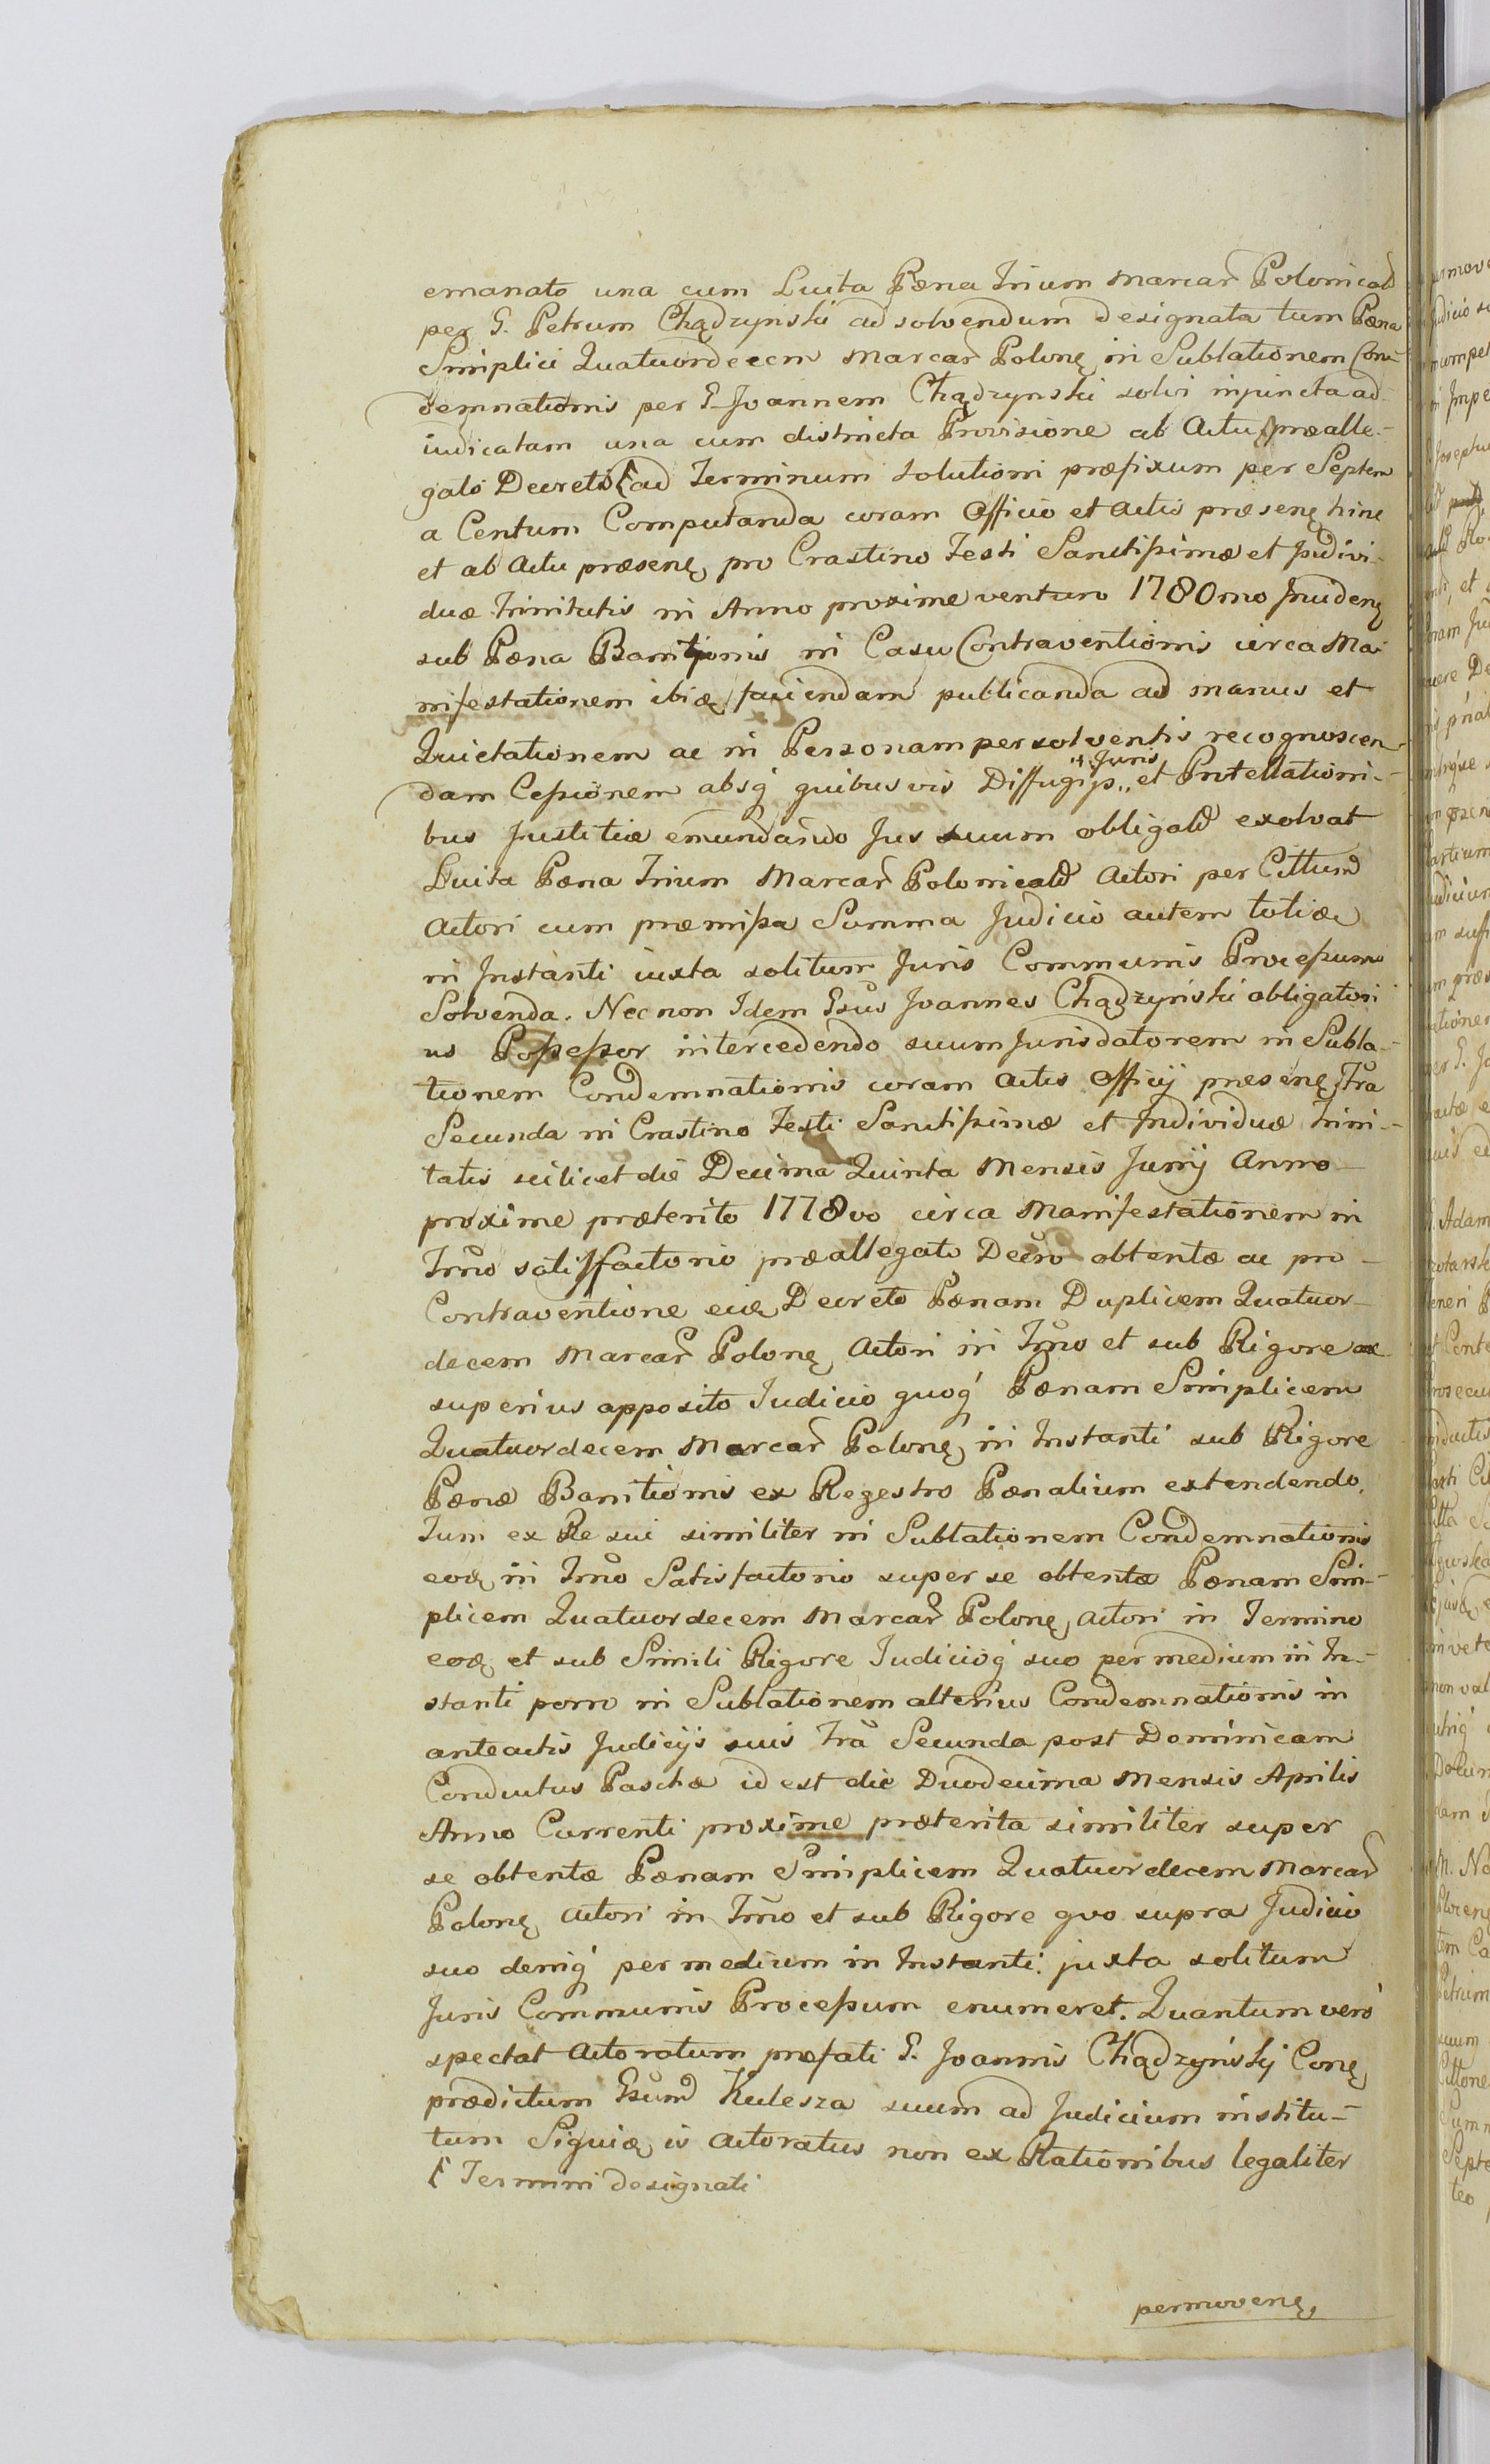 emanato una cum Luita Pæna Trium Marcar̃ Polonicał
per G. Petrum Chądzynski ad solvendum designata tum Pæna
Simplici Quatuordecem Marcar̃ Polonę in Sublationem Con-
demnationis per G. Joannem Chądzynski solvi injuncta ad-
iudicatam una cum districta Provisione ab Actu præalle-
gato Decreto ad Terminum Solutioni præfixum per Septem
a Centum Computanda coram Officio et Actis præsenę hinc
et ab Actu præsenę pro Crastino Festi Sanctissimæ et Indivi-
duæ Trinitatis in Anno proxime venturo 1780mo Inudenę
sub Pæna Banitionis in Casu Contraventionis circa Ma-
nifestationem ibię faciendam publicanda ad manus et
Quietationem ac in Personam persolventis recognoscen-
dam Cessionem absq́ quibusvis Diffugijs " Juris " et Protellationi-
bus Justitiæ emundando Jus suum obligatł exolvat
Luita Pæna Trium Marcar̃ Polonicatł Actori per Cittum
Actori cum præmissa Summa Judicio autem totię
in Instanti iuxta solitum Juris Communis Processum
Solvenda. Nec non Idem Gsũs Joannes Chądzyński obligatori
us Possessor intercedendo suum Jurisdatorem in Subla-
tionem Condemnationis coram Actis Officij præsenę Fr̃a
Secunda in Crastino Festi Sanctissimæ et Individuæ Trini-
tatis scilicet die Decima Quinta Mensis Junij Anno
proxime præterito 1778vo circa Manifestationem in
Trño satisfactorio præallegato Decr̃o obtentæ ac pro
Contraventione eię Decreto Pænam Duplicem Quatuor-
decem Marcar̃ Polonę Actori in Trño et sub Rigore
superius apposito Judicio quoq́ Pænam Simplicem
Quatuordecem Marcar̃ Polonę in Instanti sub Rigore
Pænæ Banitionis ex Regestro Pænalium extendendo,
Tum ex Re sui similiter in Sublationem Condemnationis
eoę in Trño Satisfactorio super se obtentæ Pænam Sim-
plicem Quatuordecem Marcar̃ Polonę Actori in Termino
eoę et sub Simili Rigore Judicioq́ suo per medium in In-
stanti porro in Sublationem alterius Condemnationis in
anteactis Judicijs suis Fr̃a Secunda post Dominicam
Conductus Paschæ id est die Duodecima Mensis Aprilis
Anno Currenti proxime præterita similiter super
se obtentæ Pænam Simplicem Quatuordecem Marcar̃
Polonę Actori in Trño et sub Rigore quo supra Judicio
suo deniq́ per medium in Instanti juxta solitum
Juris Communis Processum enumeret. Quantum vero
spectat Actoratum præfati G. Joannis Chądzyńskij Conę
prædictum Gsum Kulesza suum ad Judicium institu-
tum Siquię is Actoratus non ex Rationibus legaliter
Termini designati
permovenę